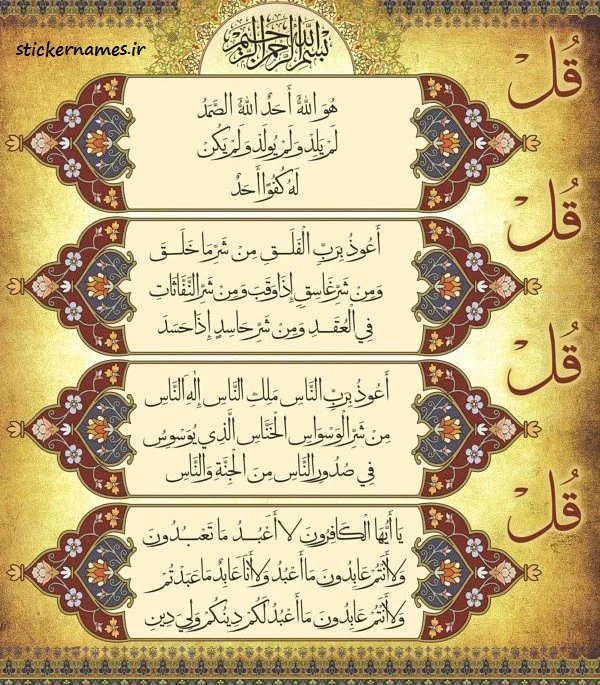 stickernames.ir
بِسْمِ اللَّهِ الرَّحْمَنِ الرَّحِيمِ
قُلْ
هُوَ اللَّهُ أَحَدٌ اللَّهُ الصَّمَدُ
لَمْ يَلِدْ وَلَمْ يُولَدْ وَلَمْ يَكُنْ
لَهُ كُفُوًا أَحَدٌ
قُلْ
أَعُوذُ بِرَبِّ الْفَلَقِ مِنْ شَرِّ مَا خَلَقَ
وَمِنْ شَرِّ غَاسِقٍ إِذَا وَقَبَ وَمِنْ شَرِّ النَّفَّاثَاتِ
فِي الْعُقَدِ وَمِنْ شَرِّ حَاسِدٍ إِذَا حَسَدَ
قُلْ
أَعُوذُ بِرَبِّ النَّاسِ مَلِكِ النَّاسِ إِلَهِ النَّاسِ
مِنْ شَرِّ الْوَسْوَاسِ الْخَنَّاسِ الَّذِي يُوَسْوِسُ
فِي صُدُورِ النَّاسِ مِنَ الْجِنَّةِ وَالنَّاسِ
قُلْ
يَا أَيُّهَا الْكَافِرُونَ لَا أَعْبُدُ مَا تَعْبُدُونَ
وَلَا أَنْتُمْ عَابِدُونَ مَا أَعْبُدُ وَلَا أَنَا عَابِدٌ مَا عَبَدْتُمْ
وَلَا أَنْتُمْ عَابِدُونَ مَا أَعْبُدُ لَكُمْ دِينُكُمْ وَلِيَ دِينِ